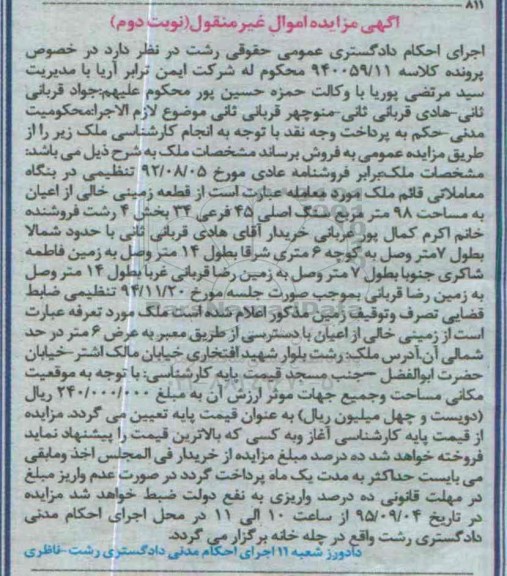 ۸۱۱
آگهی مزایده اموال غیر منقول(نوبت دوم)
اجرای احکام دادگستری عمومی حقوقی رشت در نظر دارد در خصوص
پرونده کلاسه ۹۴۰۰۵۹/۱۱ محکوم له شرکت ایمن ترابر آریا با مدیریت
سید مرتضی پوریا با وکالت حمزه حسین پور محکوم علیهم:جواد قربانی
ثانی-هادی قربانی ثانی-منوچهر قربانی ثانی موضوع لازم الاجرا:محکومیت
مدنی-حکم به پرداخت وجه نقد با توجه به انجام کارشناسی ملک زیر را از
طریق مزایده عمومی به فروش برساند مشخصات ملک به شرح ذیل می باشد:
مشخصات ملک:برابر فروشنامه عادی مورخ ۹۲/۰۸/۰۵ تنظیمی در بنگاه
معاملاتی قائم ملک مورد معامله عبارت است از قطعه زمینی خالی از اعیان
به مساحت ۹۸ متر مربع سنگ اصلی ۴۵ فرعی ۳۴ بخش ۴ رشت فروشنده
خانم اکرم کمال پور قربانی خریدار آقای هادی قربانی ثانی با حدود شمالا
بطول ۷متر وصل به کوچه ۶ متری شرقا بطول ۱۴ متر وصل به زمین فاطمه
شاکری جنوبا بطول ۷ متر وصل به زمین رضا قربانی غربا بطول ۱۴ متر وصل
به زمین رضا قربانی بموجب صورت جلسه مورخ ۹۴/۱۱/۲۰ تنظیمی ضابط
قضایی تصرف وتوقیف زمین مذکور اعلام شده است ملک مورد تعرفه عبارت
است از زمینی خالی از اعیان با دسترسی از طریق معبر به عرض ۶ متر در حد
شمالی آن.آدرس ملک: رشت بلوار شهید افتخاری خیابان مالک اشتر-خیابان
حضرت ابوالفضل -جنب مسجد قیمت پایه کارشناسی: با توجه به موقعیت
مکانی مساحت وجمیع جهات موثر ارزش آن به مبلغ ۲۴۰/۰۰۰/۰۰۰ ریال
(دویست و چهل میلیون ریال) به عنوان قیمت پایه تعیین می گردد. مزایده
از قیمت پایه کارشناسی آغاز وبه کسی که بالاترین قیمت را پیشنهاد نماید
فروخته خواهد شد ده درصد مبلغ مزایده از خریدار فی المجلس اخذ ومابقی
می بایست حداکثر به مدت یک ماه پرداخت گردد در صورت عدم واریز مبلغ
در مهلت قانونی ده درصد واریزی به نفع دولت ضبط خواهد شد مزایده
در تاریخ ۹۵/۰۹/۰۴ از ساعت ۱۰ الی ۱۱ در محل اجرای احکام مدنی
دادگستری رشت واقع در چله خانه برگزار می گردد.
دادورز شعبه ۱۱ اجرای احکام مدنی دادگستری رشت-ناظری